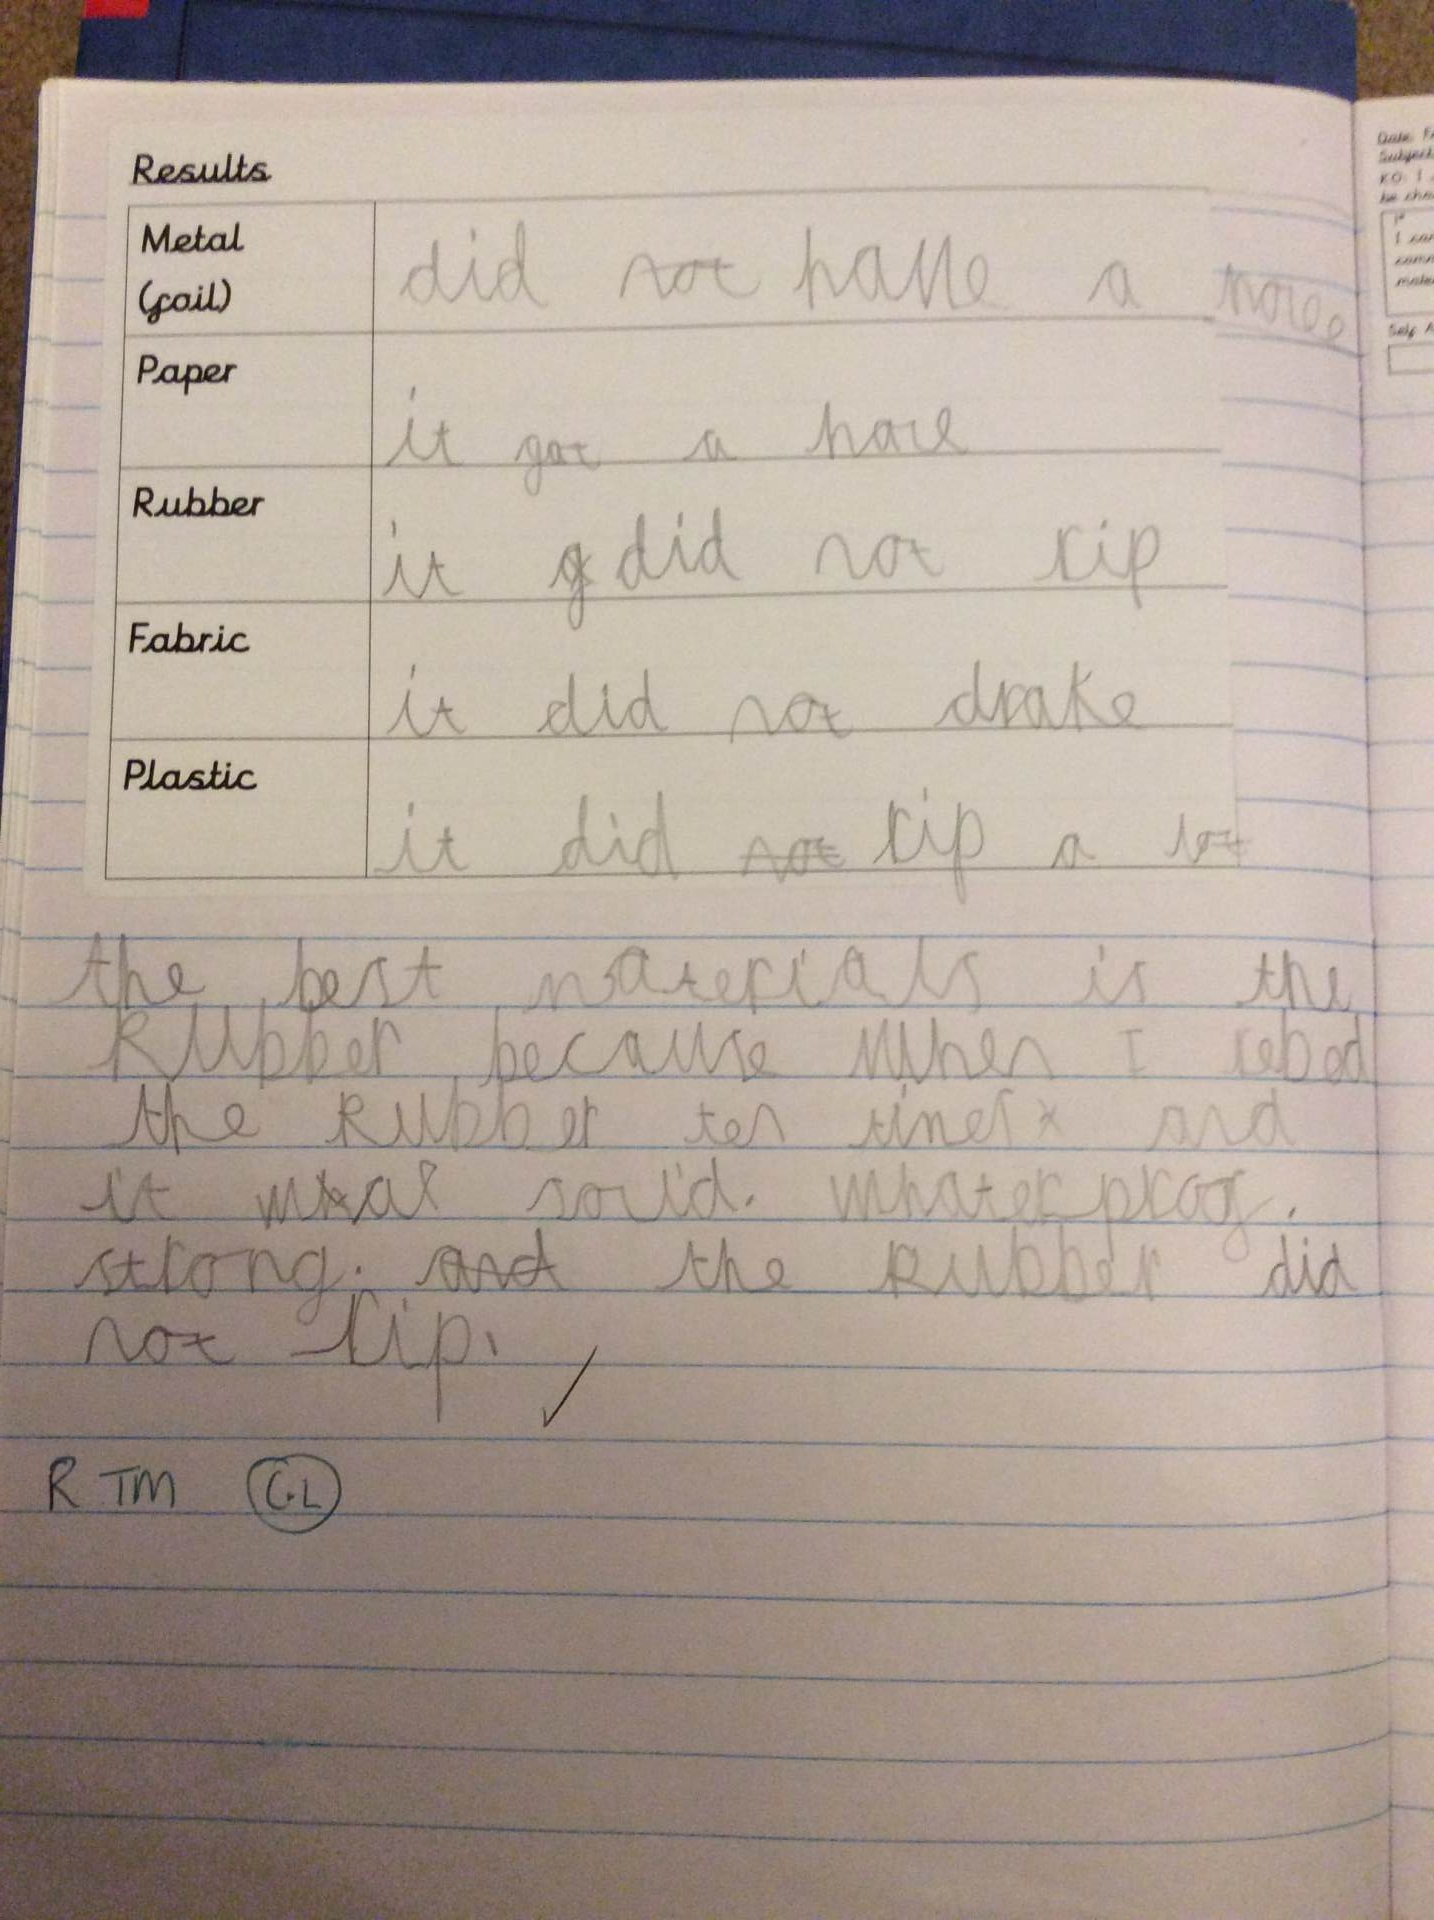 Results
Metal
(foil)
did not have a hole.
Paper
it got a hole
Rubber
it g did not rip
Fabric
it did not drake
Plastic
it did not rip a lot
the best materials is the
Rubber because when I rebod
the Rubber ten times x and
it whas solid. whaterproog.
strong. and the Rubber did
not rip.
R TM C.L
Date: F
Subject
KO: I
be cha
I can
comm
mate
Self A